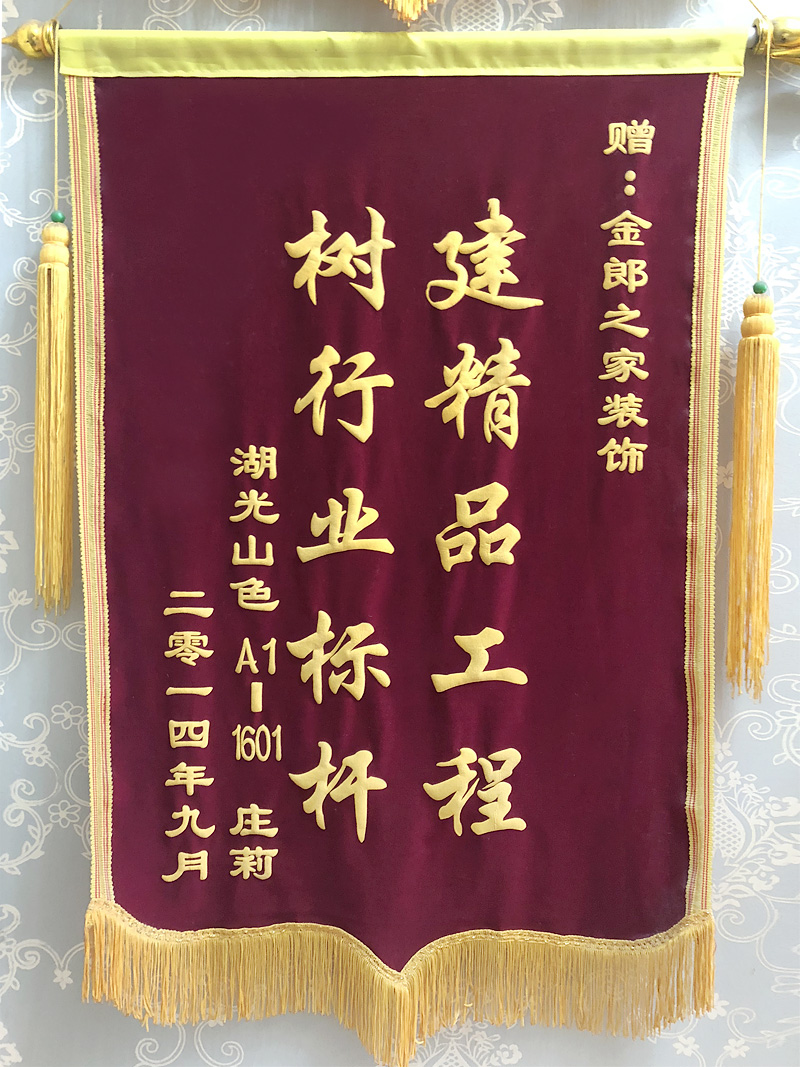 赠：金郎之家装饰
建精品工程
树行业标杆
湖光山色 A1-1601 庄莉
二零一四年九月